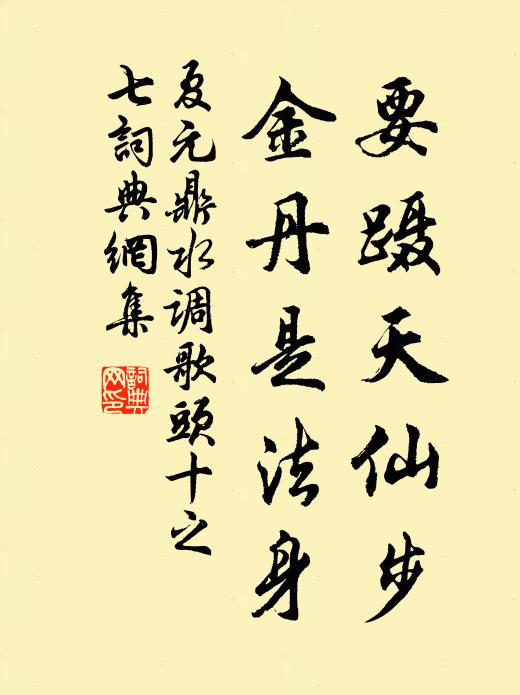 要蹑天仙步
金丹是法身
夏元鼎水调歌頭十之
七詞典網集
詞典網印